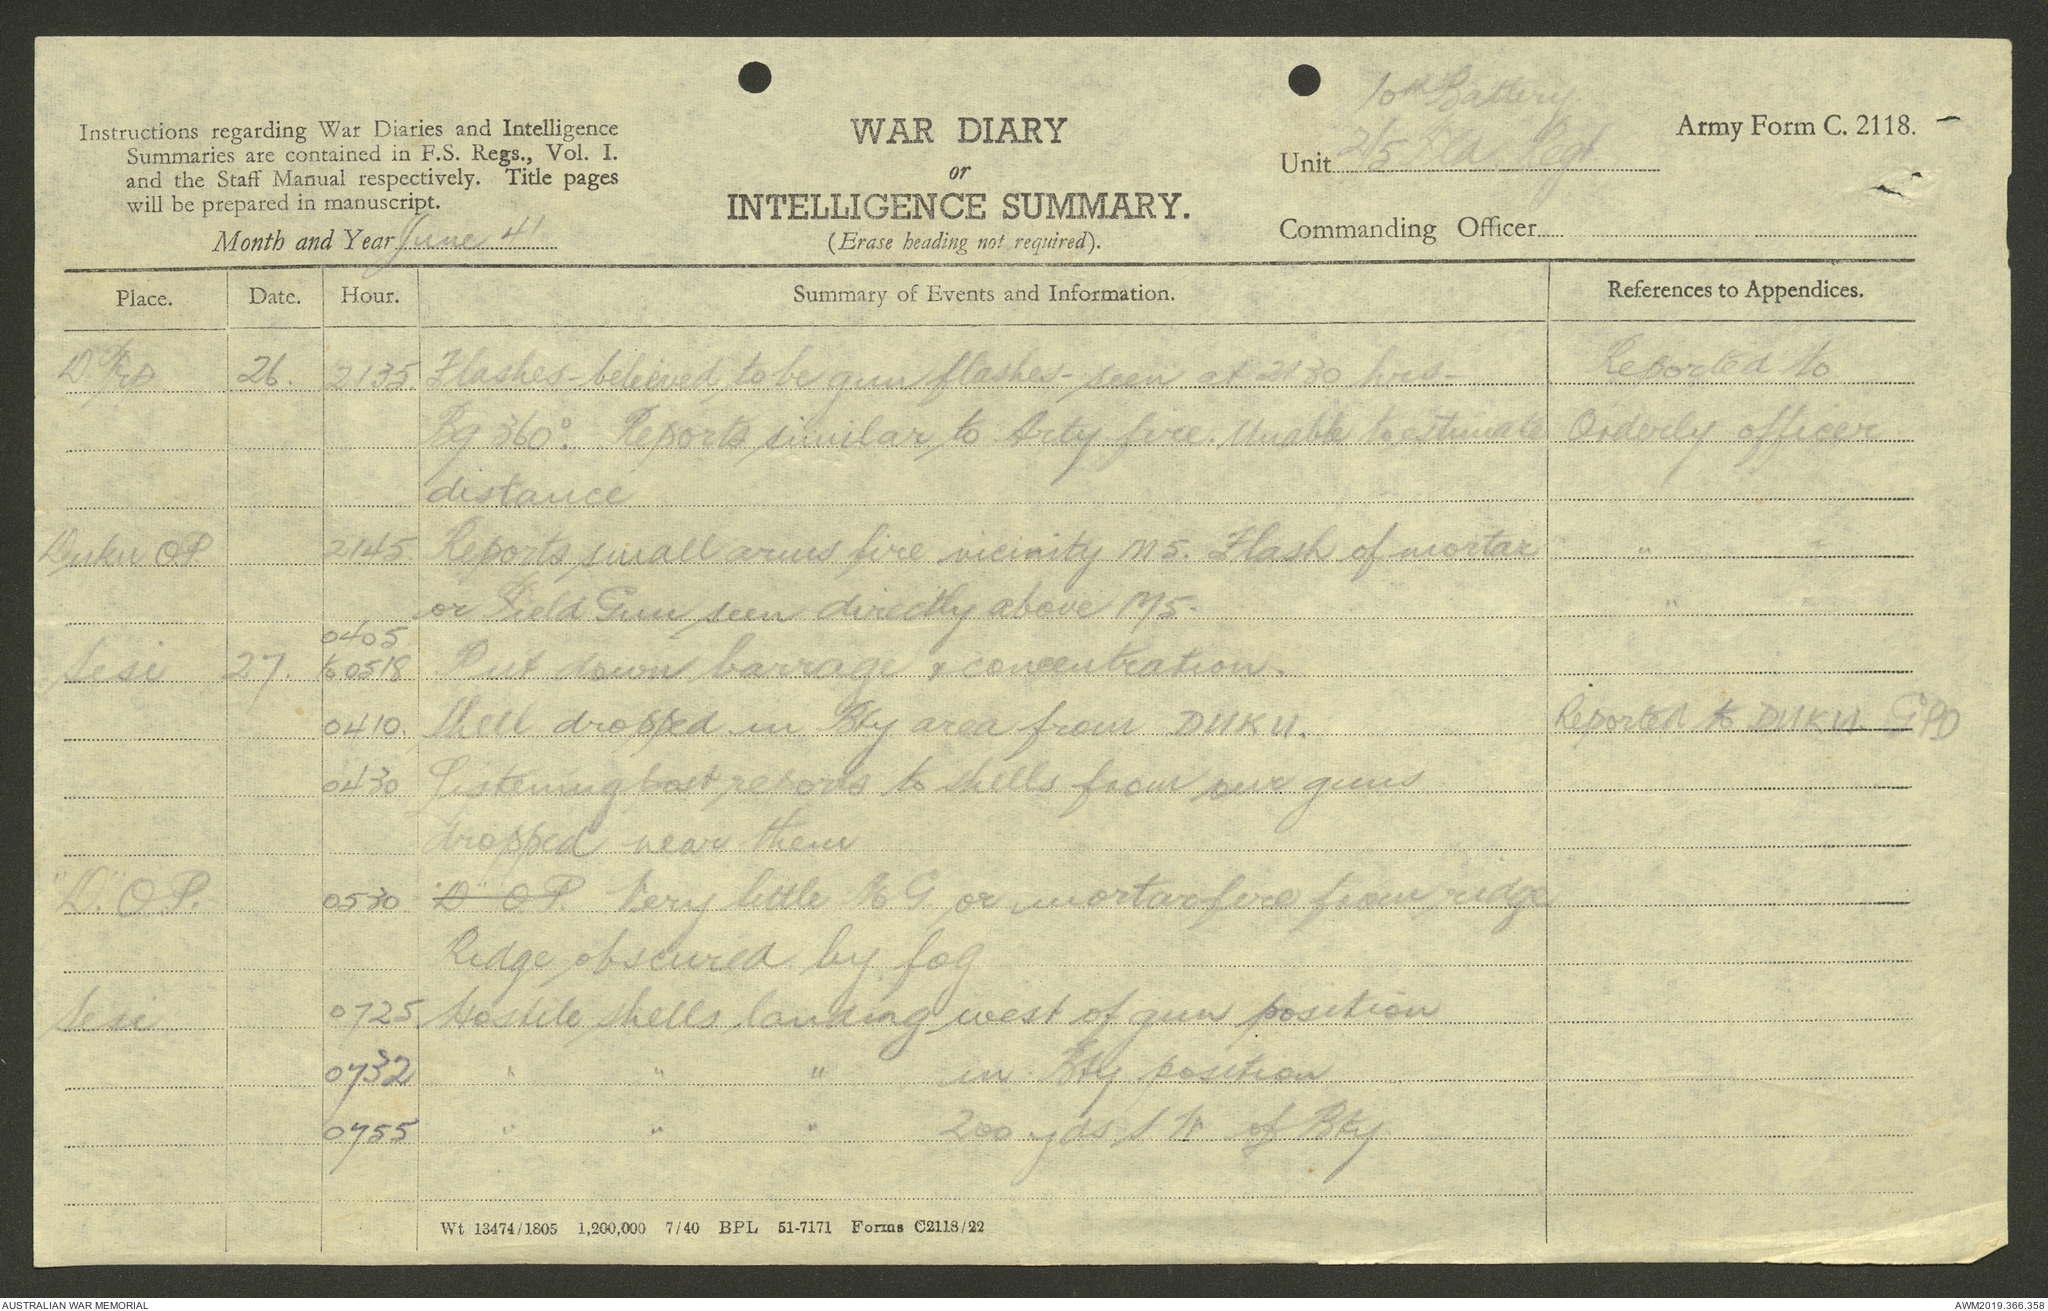 10th Battery
Instructions regarding War Diaries and Intelligence
Summaries are contained in F.S. Regs., Vol. I.
and the Staff Manual respectively. Title pages
will be prepared in manuscript.
Month and Year June 41
WAR DIARY
or
INTELLIGENCE SUMMARY.
(Erase heading not required).
Army Form C. 2118.
Unit 2/5 Fld. Regt
Commanding Officer
Place. Date. Hour. Summary of Events and Information. References to Appendices.
26. 2135. Flashes - believed to be gun flashes - seen at 2130 hrs - Reported to
Bg 360°. Reports similar to Arty fire. Unable to estimate Orderly officer
distance
Duku OP. 2145. Reports small arms fire vicinity M5. Flash of mortar " "
or Field Gun seen directly above M5. " "
0405
Sesi 27. to 0518 Put down barrage & concentration.
0410. Shell dropped in Bty area from DUKU. Reported to DUKU. GPO
0430 Listening post reports to shells from our guns
dropped near them
"D". O.P. 0530 "D" O.P. Very little M G or mortar fire from ridge
Ridge obscured by fog
Sesi 0725 Hostile shells landing west of gun position
0732 " " " in Bty position
0755 " " " 200 yds S W of Bty.
Wt 13474/1805 1,200,000 7/40 BPL 51-7171 Forms C2118/22
AUSTRALIAN WAR MEMORIAL
AWM2019.366.358